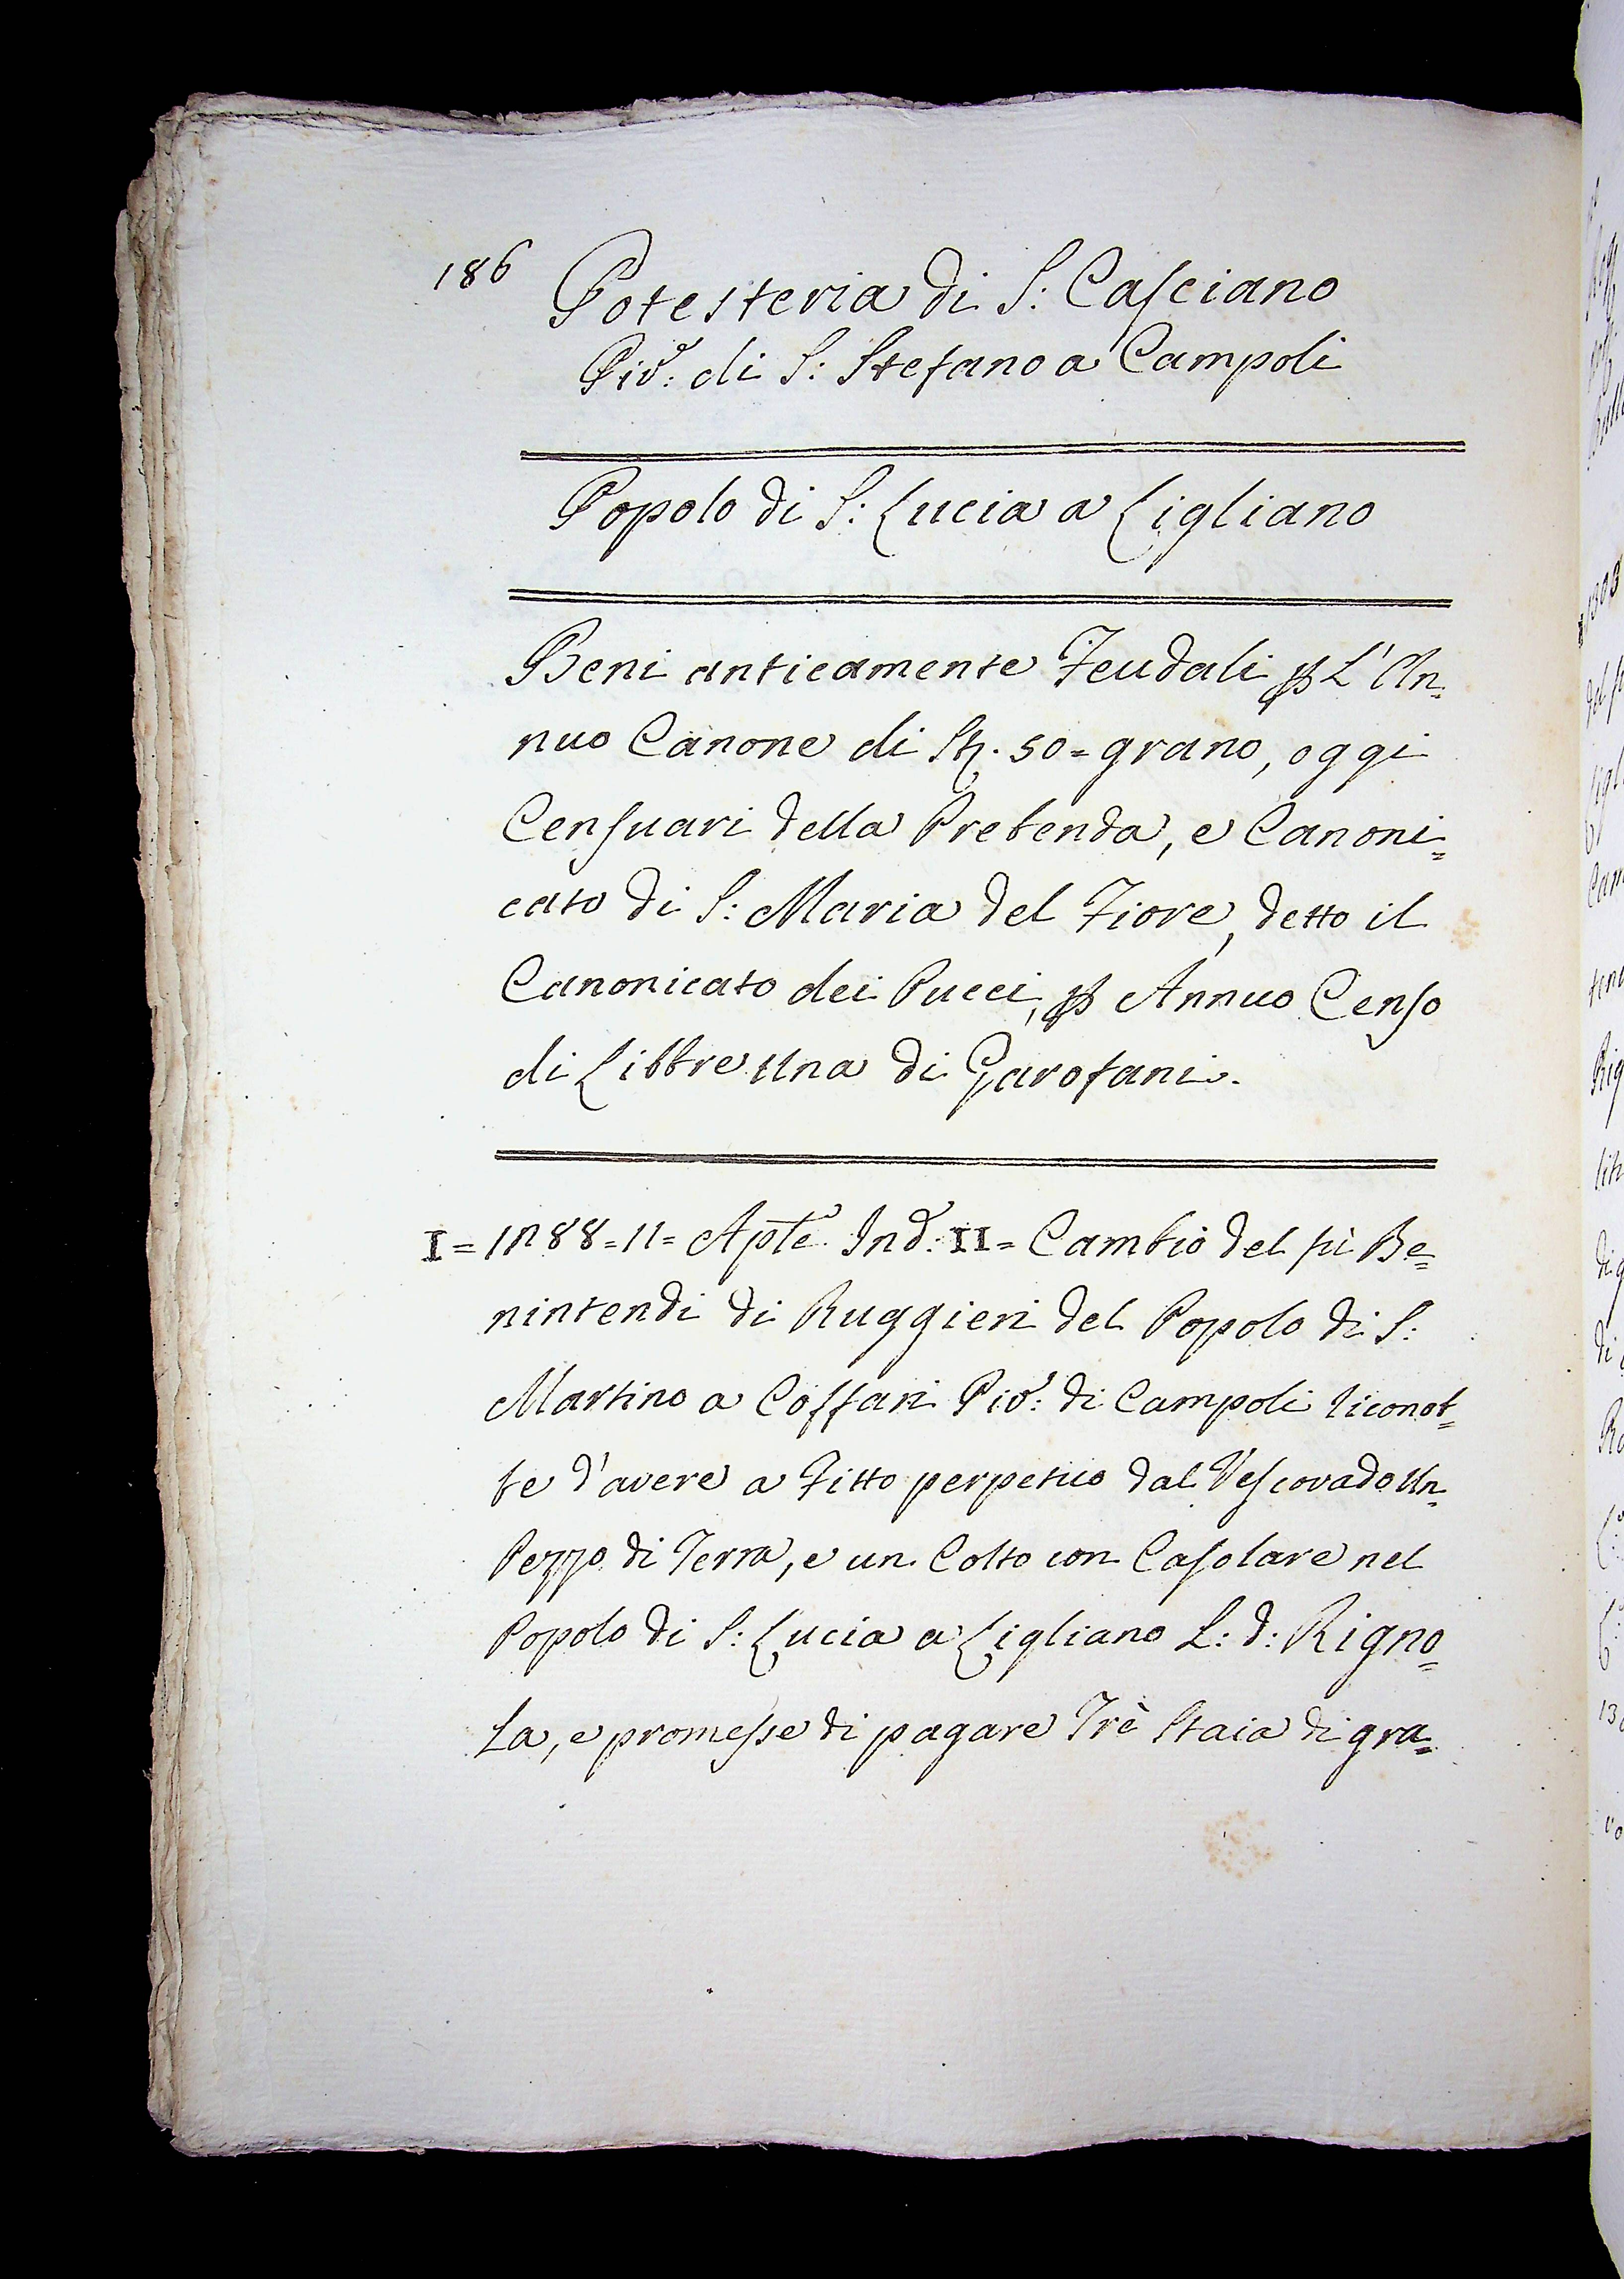 186
Potesteria di S: Casciano
Piv: di S: Stefano a Campoli
Popolo di S: Lucia a Ligliano
Beni anticamente Feudali p L'An=
nuo Canone di St. 50= grano, oggi
Censuari della Prebenda, e Canoni=
cato di S: Maria del Fiore, detto il
Canonicato dei Pucci, p Annuo Censo
di Libbre Una di Garofani.
I= 1288=11= Aple Ind: II= Cambio del fù Be=
nintendi di Ruggieri del Popolo di S:
Martino a Coffari Piv: di Campoli riconob=
be d'avere a Fitto perpetuo dal Vescovado Un
Pezzo di Terra, e un Colto con Casolare nel
Popolo di S: Lucia a Ligliano L: d: Rigno=
La, e promesse di pagare Trè Staia di gra=